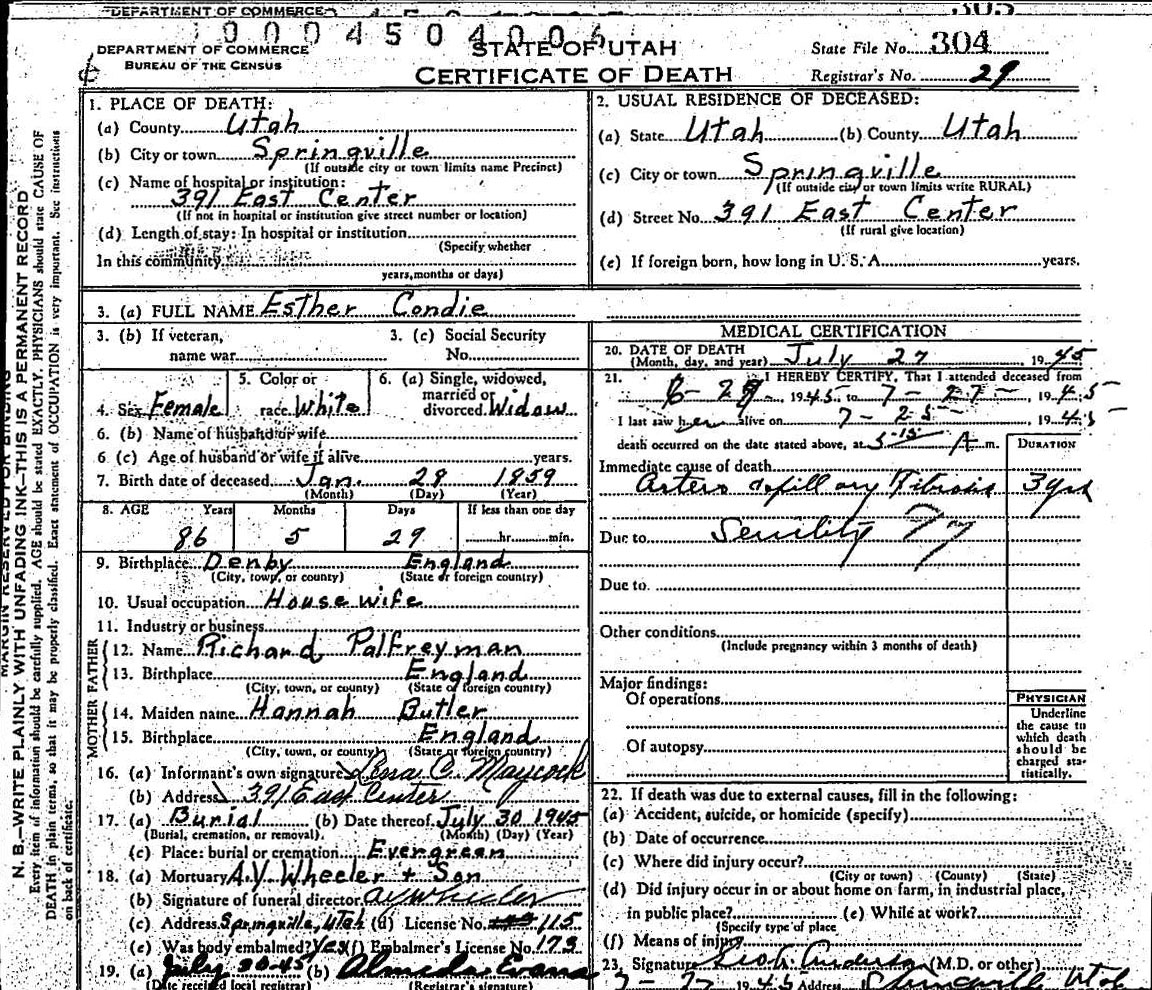 DEPARTMENT OF COMMERCE
305
0004504006
DEPARTMENT OF COMMERCE
BUREAU OF THE CENSUS
STATE OF UTAH
CERTIFICATE OF DEATH
State File No. 304
Registrar's No. 29
MARGIN RESERVED FOR BINDING
N. B.—WRITE PLAINLY WITH UNFADING INK—THIS IS A PERMANENT RECORD
Every item of information should be carefully supplied. AGE should be stated EXACTLY. PHYSICIANS should state CAUSE OF
DEATH in plain terms, so that it may be properly classified. Exact statement of OCCUPATION is very important. See instructions
on back of certificate.
1. PLACE OF DEATH:
(a) County Utah
(b) City or town Springville
(If outside city or town limits name Precinct)
(c) Name of hospital or institution:
391 East Center
(If not in hospital or institution give street number or location)
(d) Length of stay: In hospital or institution
(Specify whether
In this community
years, months or days)
2. USUAL RESIDENCE OF DECEASED:
(a) State Utah (b) County Utah
(c) City or town Springville
(If outside city or town limits write RURAL)
(d) Street No. 391 East Center
(If rural give location)
(e) If foreign born, how long in U. S. A. years.
3. (a) FULL NAME Esther Condie
3. (b) If veteran,
name war
3. (c) Social Security
No.
4. Sex Female
5. Color or
race White
6. (a) Single, widowed,
married or
divorced Widow
6. (b) Name of husband or wife
6 (c) Age of husband or wife if alive years.
7. Birth date of deceased Jan. 28 1859
(Month) (Day) (Year)
8. AGE Years Months Days If less than one day
86 5 29 hr. min.
9. Birthplace Denby England
(City, town, or county) (State or foreign country)
10. Usual occupation House wife
11. Industry or business
FATHER
12. Name Richard Palfreyman
13. Birthplace England
(City, town, or county) (State or foreign country)
MOTHER
14. Maiden name Hannah Butler
15. Birthplace England
(City, town, or county) (State or foreign country)
16. (a) Informant's own signature Lena C. Maycock
(b) Address 391 East Center
17. (a) Burial (b) Date thereof July 30 1945
(Burial, cremation, or removal). (Month) (Day) (Year)
(c) Place: burial or cremation Evergreen
18. (a) Mortuary A.Y. Wheeler + Son
(b) Signature of funeral director AY Wheeler
(c) Address Springville, Utah (d) License No. 115
(e) Was body embalmed? Yes (f) Embalmer's License No. 173
19. (a) July 30-45 (b) Almeda Evans
(Date received local registrar) (Registrar's signature)
MEDICAL CERTIFICATION
20. DATE OF DEATH
(Month, day, and year) July 27 1945
21. I HEREBY CERTIFY, That I attended deceased from
1945 to 7-27-, 1945
I last saw her alive on 7-25- 1945
death occurred on the date stated above, at 5-15 A m.
DURATION
Immediate cause of death
Fibrosis 3 yrs
Due to Senility
Due to
Other conditions
(Include pregnancy within 3 months of death)
Major findings:
Of operations
Of autopsy
PHYSICIAN
Underline
the cause to
which death
should be
charged sta-
tistically.
22. If death was due to external causes, fill in the following:
(a) Accident, suicide, or homicide (specify)
(b) Date of occurrence
(c) Where did injury occur?
(City or town) (County) (State)
(d) Did injury occur in or about home on farm, in industrial place,
in public place? (e) While at work?
(Specify type of place
(f) Means of injury
23. Signature Anderson (M.D. or other)
1945 Address Springville Utah